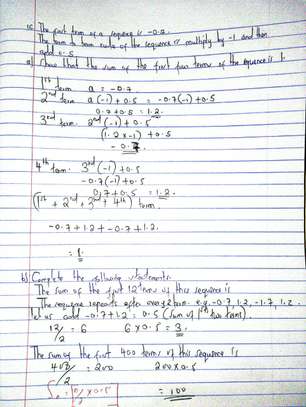 15. The first term of a sequence is -0.7.
The term to term rule of the sequence is multiply by -1 and then
add 0.5
a) Show that the sum of the first four terms of the sequence is 1.
1st term a = -0.7
2nd term a(-1)+0.5 = -0.7(-1)+0.5
0.7+0.5 = 1.2
3rd term 2nd(-1)+0.5
(1.2 x -1) +0.5
-0.7
4th term. 3rd(-1)+0.5
-0.7(-1)+0.5
0.7+0.5 = 1.2
(1st + 2nd + 3rd + 4th) term
-0.7+1.2+-0.7+1.2
= 1
b) Complete the following statements
The sum of the first 12 terms of this sequence is
The sequence repeats after every 2 term. e.g. -0.7, 1.2, -0.7, 1.2
let us add -0.7+1.2 = 0.5 (sum of 1st two terms)
12/2 = 6 6 x 0.5 = 3
The sum of the first 400 terms of this sequence is
400/2 = 200 200 x 0.5
= 100
n/2 x 0.5